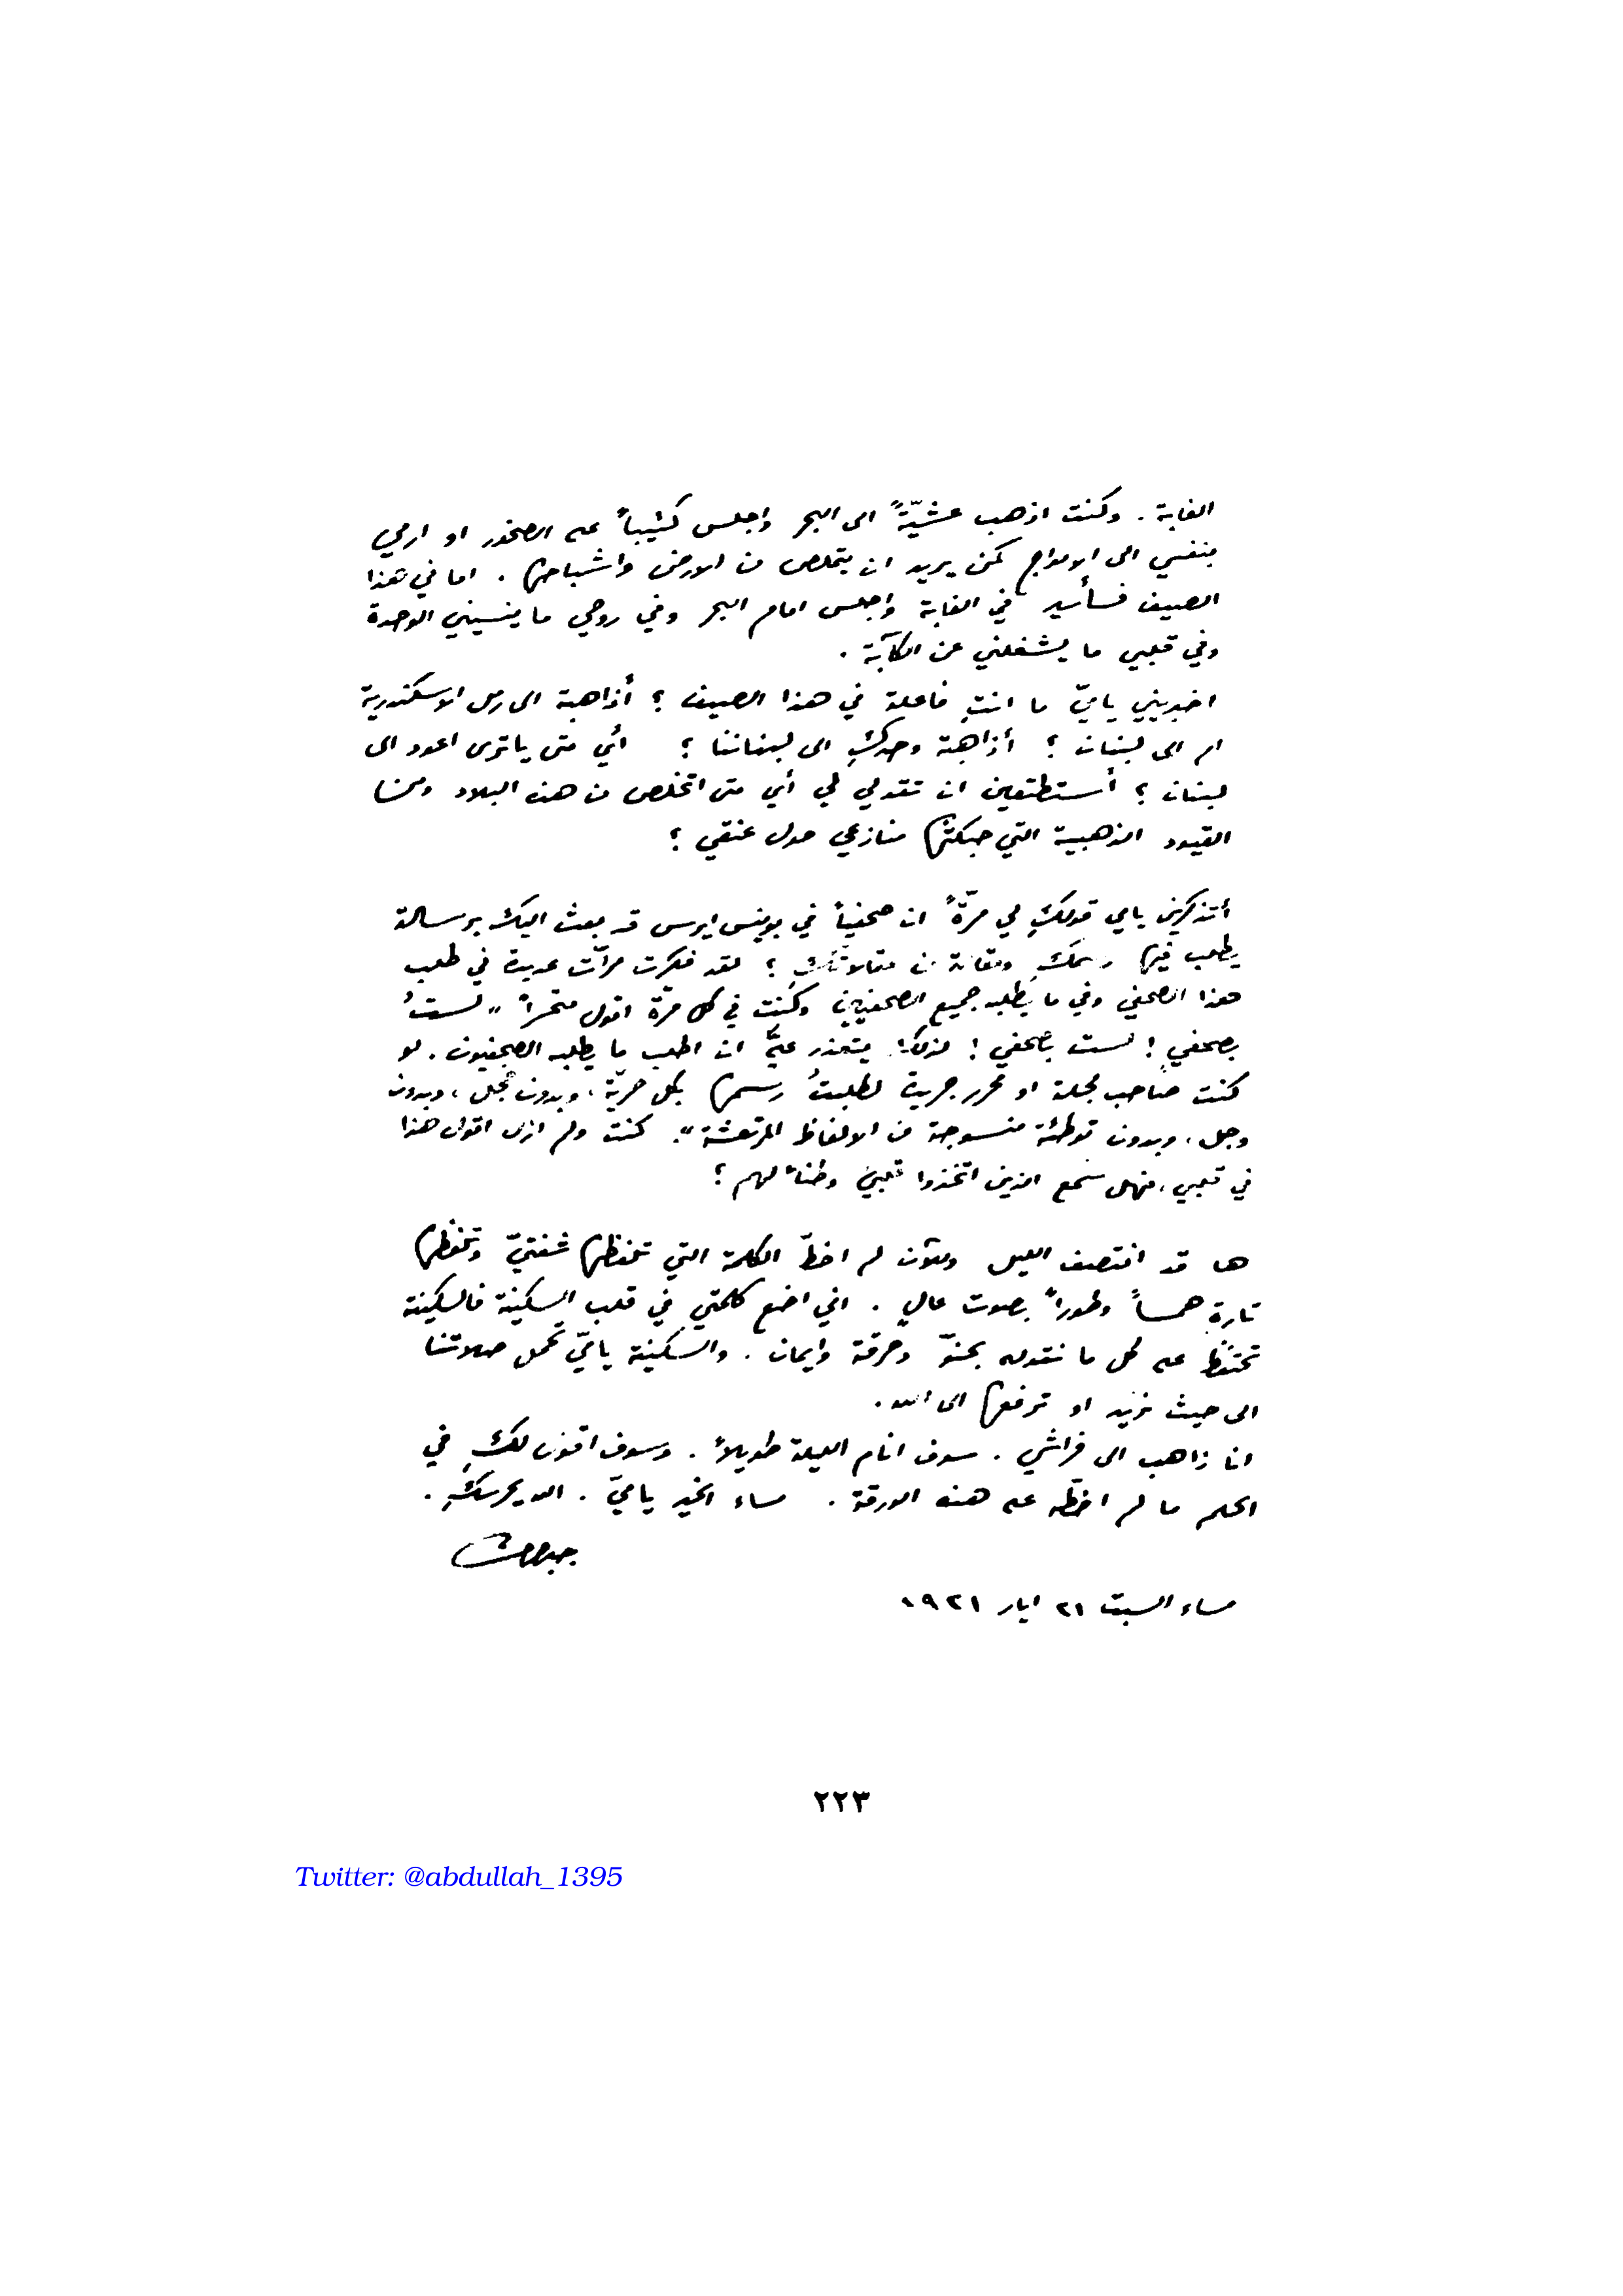 الغابة . وكنت اذهب عشيّةً الى البحر واجلس كئيباً على الصخور او ارمي
بنفسي الى الامواج كمن يريد ان يتملص من الارض واشباحها . اما في هذا
الصيف فسأسير في الغابة واجلس امام البحر وفي روحي ما ينسيني الوحدة
وفي قلبي ما يشغلني عن الكآبة .
اخبريني يا ميّ ما انتِ فاعلة في هذا الصيف ؟ أذاهبة الى رمل الاسكندرية
ام الى لبنان ؟ أذاهبة وحدكِ الى لبناننا ؟ أي متى يا ترى اعود الى
لبنان ؟ أستطتعين ان تقولي لي أي متى اتخلص من هذه البلاد ومن
القيود الذهبية التي حبكتها منازعي حول عنقي ؟
أتذكرين يا مي قولكِ لي مرّةً ان صحفياً في بوينس ايرس قد بعث اليك برسالة
يطلب فيها رسمكِ ومقالة من مقالاتكِ ؟ لقد فكرت مرآت عديدة في طلب
هذا الصحفي وفي ما يطلبه جميع الصحفيين وكنت في كل مرّة اقول متحسراً " لستُ
بصحفي ! لست بصحفي ! لذلك يتعذر عليّ ان اطلب ما يطلبه الصحفيون . لو
كنت صاحب مجلة او محرر جريدة لطلبتُ رسمها بكل حريّة ، وبدون خجل ، وبدون
وجل ، وبدون توطئة منسوجة من الالفاظ المرتعشة ". كنت ولم ازل اقول هذا
في قلبي ، فهل سمع الذين اتخذوا قلبي وطناً لهم ؟
ها قد انتصف الليل وللآن لم اخطّ الكلمة التي تلفظها شفتيّ وتلفظها
تارة همساً وطوراً بصوت عالٍ . اني اضع كلمتي في قلب السكينة فالسكينة
تحتفظ على كل ما نقوله بحنوّ وحرقة وايمان . والسكينة يا ميّ تحمل صلاتنا
الى حيث نريد او ترفعها الى الله .
انا ذاهب الى فراشي . سوف انام الليلة طويلاً . وسوف اقول لكِ في
الحلم ما لم اخطّه على هذه الورقة . مساء الخير يا ميّ . الله يحرسكِ .
جبران
مساء السبت ٢١ ايار ١٩٢١
٢٢٣
Twitter: @abdullah_1395